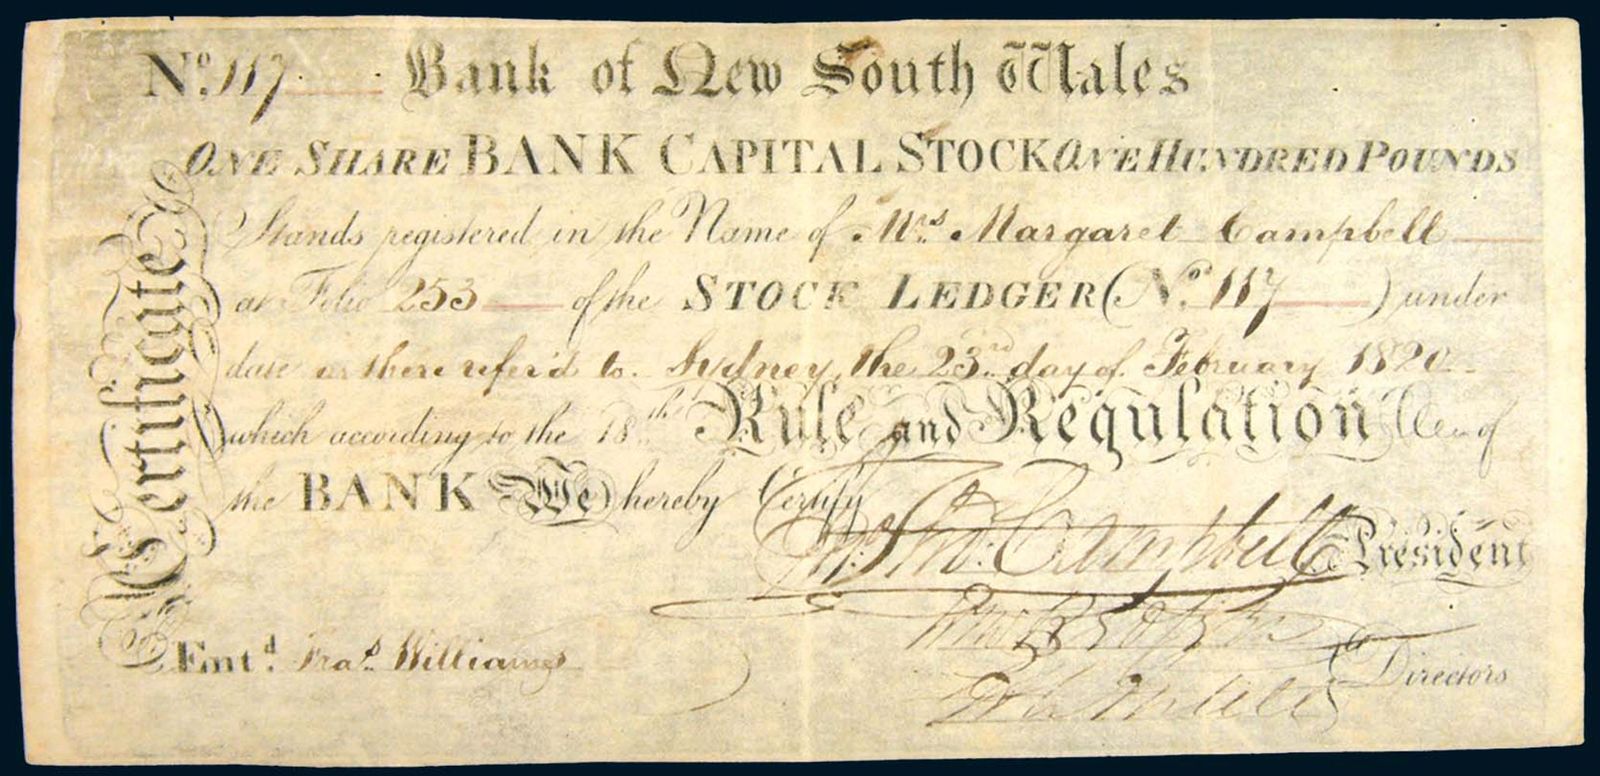 Nº. 117 Bank of New South Wales
ONE SHARE BANK CAPITAL STOCK ONE HUNDRED POUNDS
Stands registered in the Name of Mrs. Margaret Campbell
at Folio 253 of the STOCK LEDGER (Nº. 117 ) under
date as there refer'd to. Sydney, the 23rd. day of February 1820
which according to the 18th. Rule and Regulation of
the BANK We hereby Certify
Certificate
Jn. Thos. Campbell President
Entd. Fras. Williams
Directors